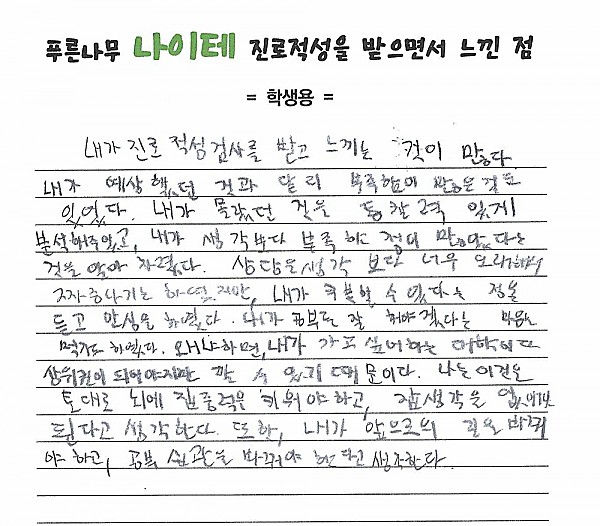 푸른나무 나이테 진로적성을 받으면서 느낀 점
= 학생용 =
내가 진로 적성검사를 받고 느끼는 것이 많다
내가 예상했던 것과 달리 부족함이 많은 걸
있었다. 내가 몰랐던 것을 통찰력 있게
분석해주었고, 내가 생각보다 부족한 점이 많았다는
것을 알아 차렸다. 상담은 생각 보다 너무 오래해서
짜증나기는 하였지만, 내가 커질 수 있다는 점을
듣고 안심을 하였다. 내가 공부도 잘 해야겠다는 마음을
먹기도 하였다. 왜냐하면, 내가 가고 싶어하는 대학이
상위권이 되어야지만 갈 수 있기 때문이다. 나는 이것을
토대로 뇌에 집중력을 키워야 하고, 잡생각을
된다고 생각한다. 또한, 내가 앞으로의 길을 바꿔
야 하고, 공부 습관을 바꿔야 한다고 생각한다.